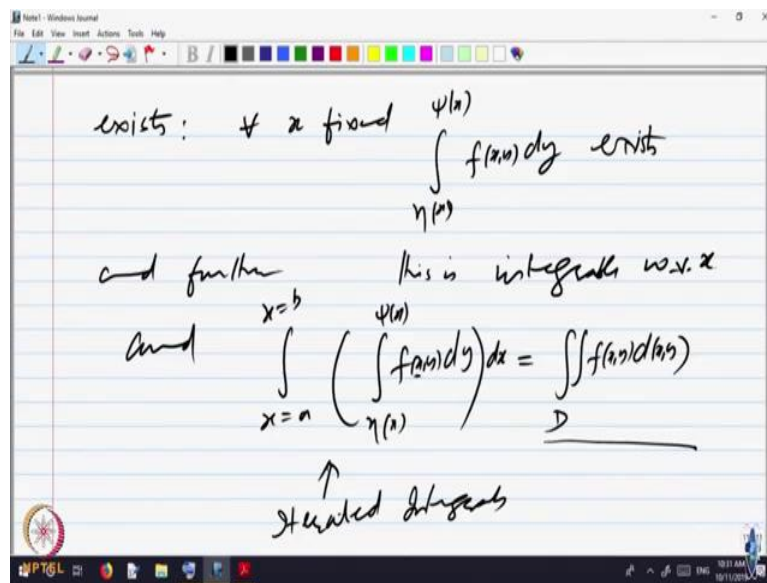 Note1 - Windows Journal
File Edit View Insert Actions Tools Help
B I
exists : ∀ x fixed ∫_{η(x)}^{ψ(x)} f(x,y) dy exists
and further this is integrable w.r. x
and ∫_{x=a}^{x=b} ( ∫_{η(x)}^{ψ(x)} f(x,y) dy ) dx = ∬_D f(x,y) d(x,y)
↑
Iterated Integrals
NPTEL
ENG
10:31 AM